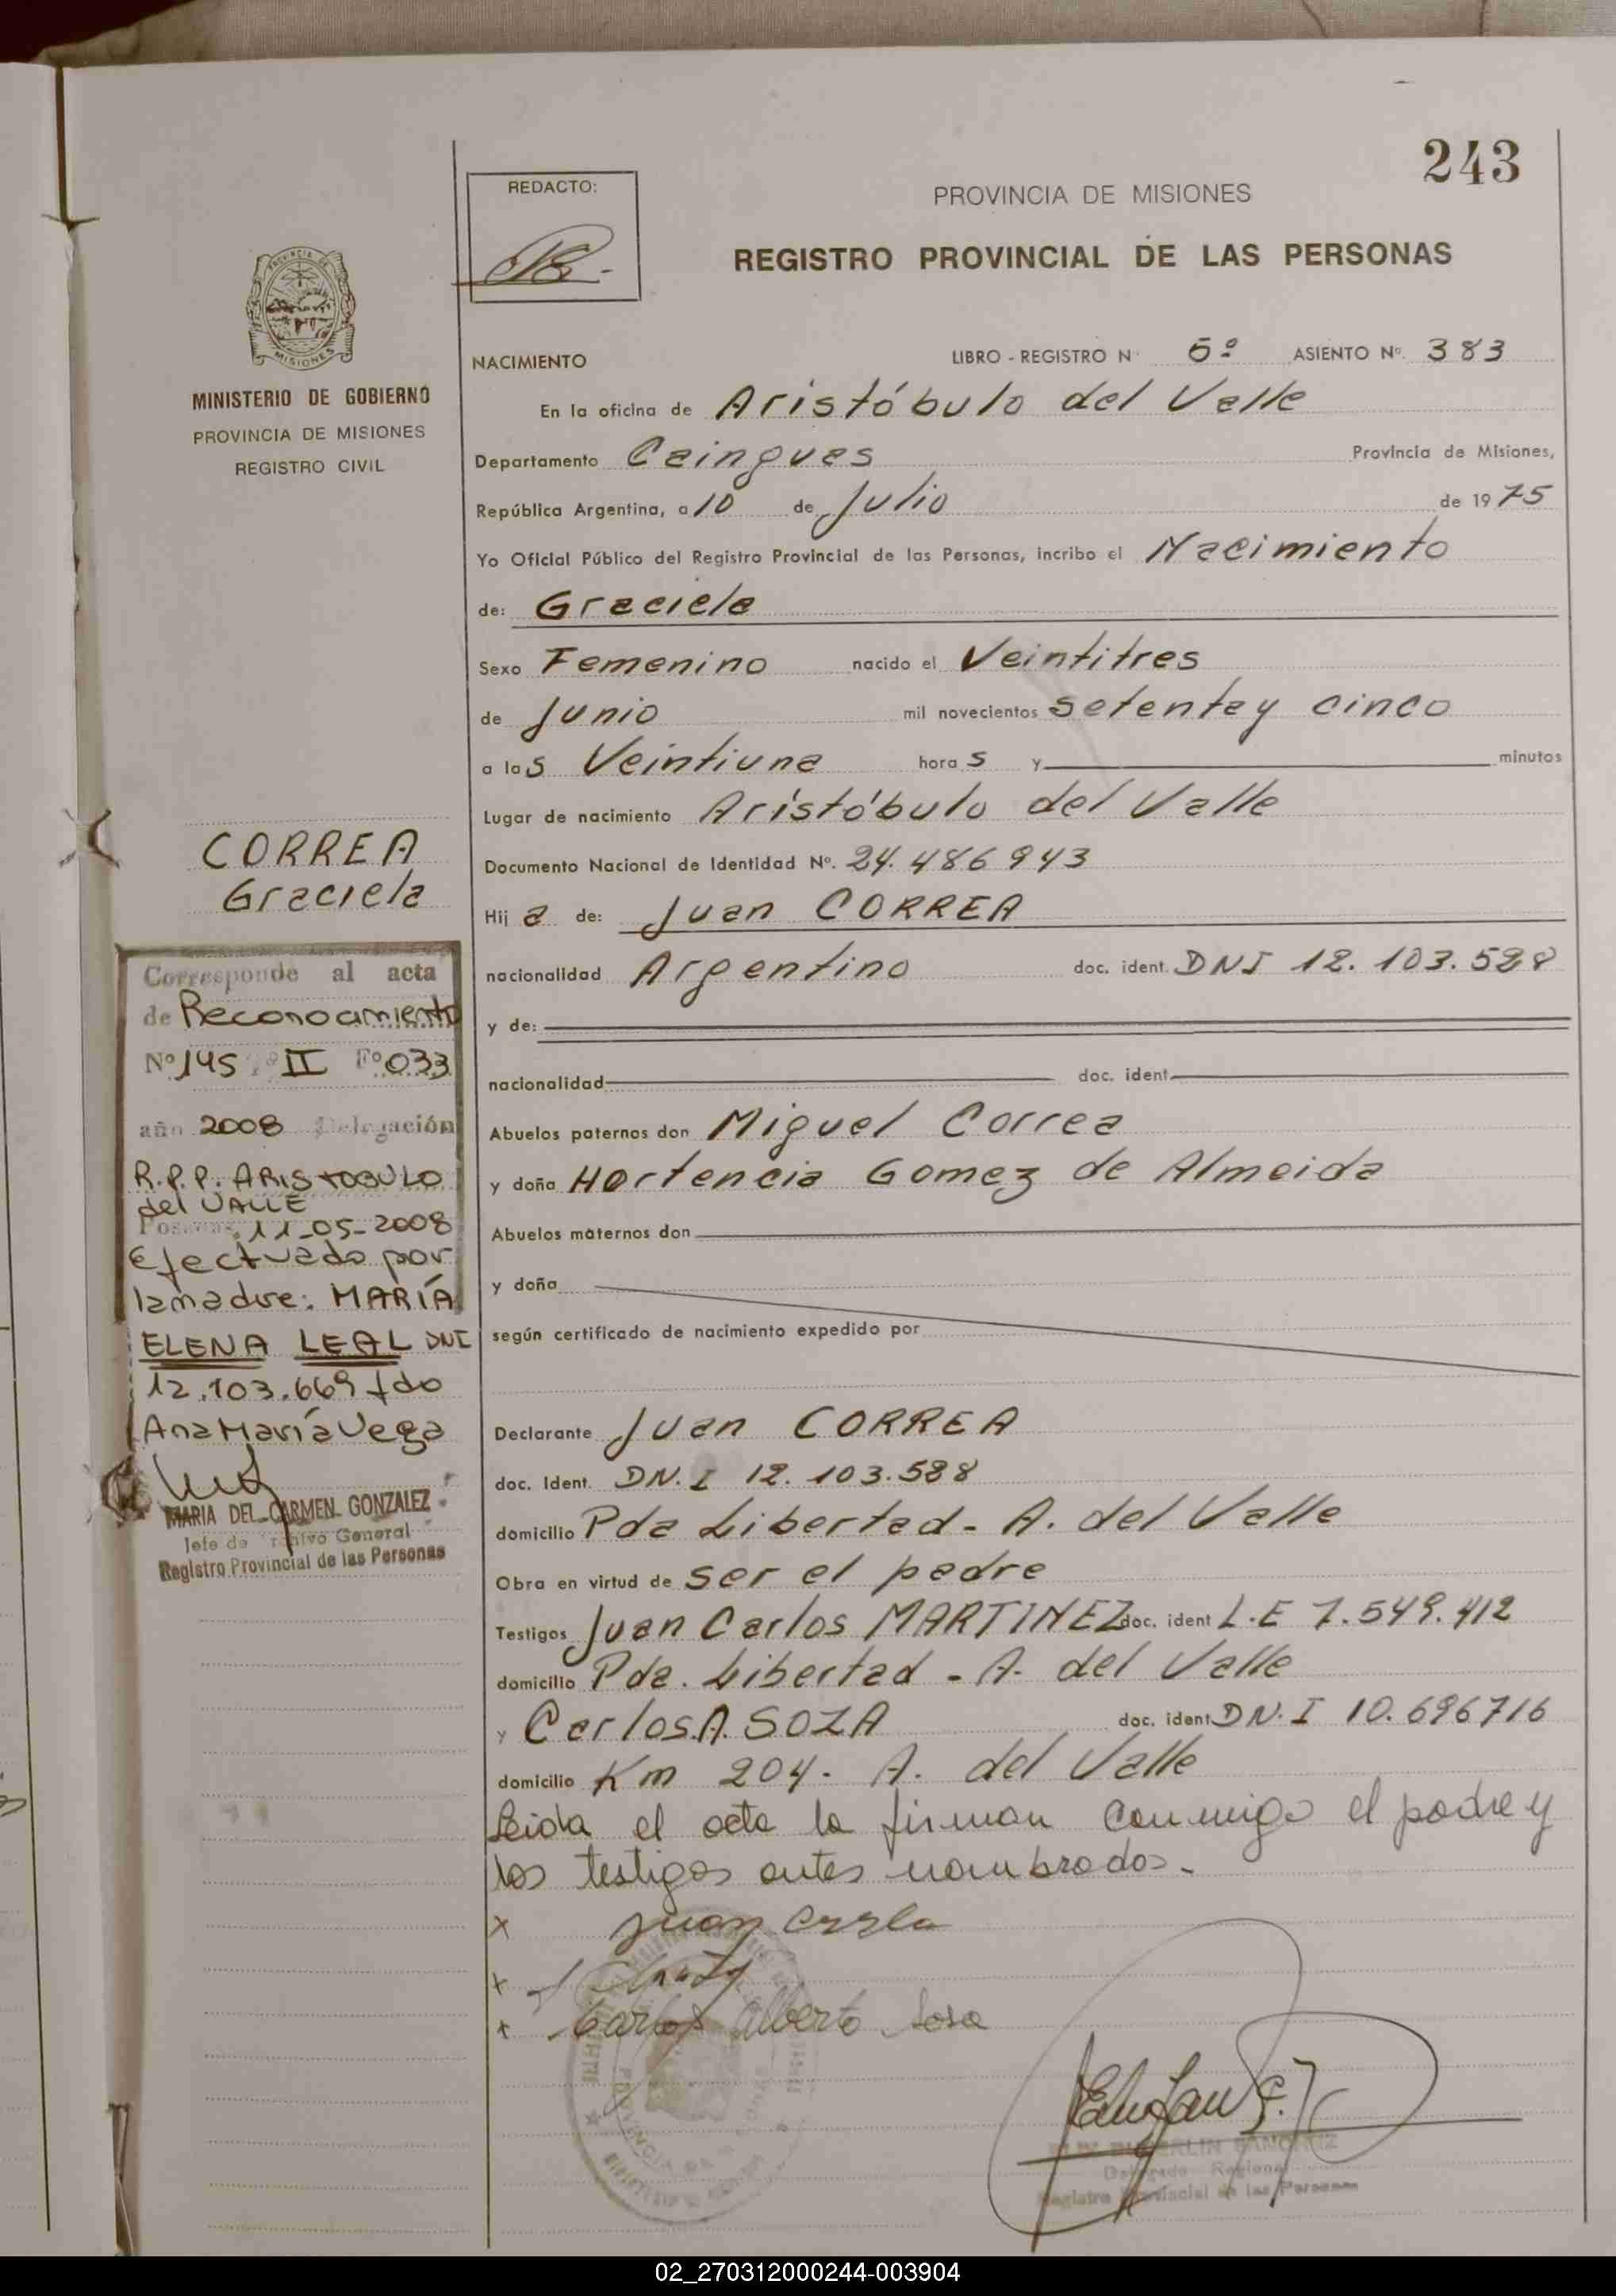 243
REDACTO:
PROVINCIA DE MISIONES
REGISTRO PROVINCIAL DE LAS PERSONAS
PROVINCIA DE
MISIONES
MINISTERIO DE GOBIERNO
PROVINCIA DE MISIONES
REGISTRO CIVIL
NACIMIENTO LIBRO - REGISTRO N° 5º ASIENTO Nº. 383
En la oficina de Aristóbulo del Valle
Departamento Caingues Provincia de Misiones,
República Argentina, a 10 de Julio de 1975
Yo Oficial Público del Registro Provincial de las Personas, incribo el Nacimiento
de: Graciela
Sexo Femenino nacido el Veintitres
de Junio mil novecientos setenta y cinco
a las Veintiuna horas y minutos
Lugar de nacimiento Arístóbulo del Valle
Documento Nacional de Identidad Nº. 24.486943
Hija de: Juan CORREA
nacionalidad Argentino doc. ident. DNI 12.103.588
y de:
nacionalidad doc. ident.
Abuelos paternos don Miguel Correa
y doña Hortencia Gomez de Almeida
Abuelos maternos don
y doña
según certificado de nacimiento expedido por
Declarante Juan CORREA
doc. Ident. DN.I 12.103.588
domicilio Pda Libertad - A. del Valle
Obra en virtud de ser el padre
Testigos Juan Carlos MARTINEZ doc. ident L.E 7.549.412
domicilio Pda. Libertad - A. del Valle
y Carlos A. SOZA doc. ident DN.I 10.696716
domicilio Km 204. A. del Valle
Leida el acta la firman conmigo el padre y
los testigos antes nombrados.-
x Juan
x
x Carlos Alberto Sosa
Delegado Regional
Registro Provincial de las Personas
CORREA
Graciela
Corresponde al acta
de Reconocimiento
Nº 145 II Fº 033
año 2008 Delegación
R.P.P. ARISTOBULO
del VALLE
Posadas, 11-05-2008
Efectuado por
la madre: MARÍA
ELENA LEAL DNI
12.103.669 fdo
Ana María Vega
MARIA DEL CARMEN GONZALEZ
Jefe de Archivo General
Registro Provincial de las Personas
02_270312000244-003904